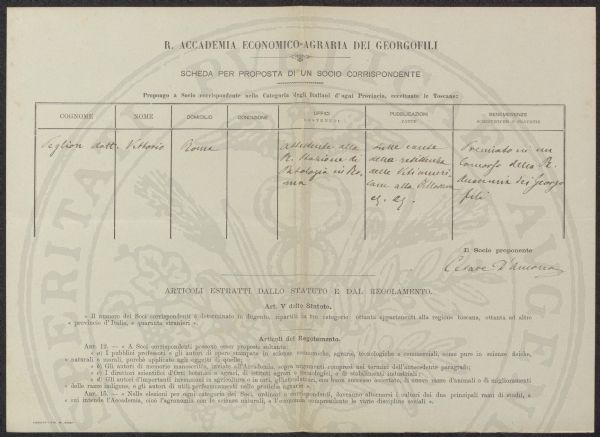 R. ACCADEMIA ECONOMICO-AGRARIA DEI GEORGOFILI
SCHEDA PER PROPOSTA DI UN SOCIO CORRISPONDENTE
Propongo a Socio corrispondente nella Categoria degli Italiani d'ogni Provincia, eccettuate le Toscane:
COGNOME NOME DOMICILIO CONDIZIONE UFFICI SOSTENUTI PUBBLICAZIONI FATTE BENEMERENZE SCIENTIFICHE O PRATICHE
Peglion dott. Vittorio Roma
assistente alla
R. Stazione di
Patologia in Ro
ma
Sulle cause
della resistenza
delle Viti ameri
cane alla fillossera
Premiato in un
Concorso della R.
Accademia dei Georgo
fili
Il Socio proponente
Cesare D'Ancona
ARTICOLI ESTRATTI DALLO STATUTO E DAL REGOLAMENTO.
Art. V dello Statuto.
« Il numero dei Soci corrispondenti è determinato in dugento, ripartiti in tre categorie: ottanta appartenenti alla regione toscana, ottanta ad altre
« provincie d'Italia, e quaranta stranieri ».
Articoli del Regolamento.
Art. 12. — « A Soci corrispondenti possono esser proposti soltanto:
« a) I pubblici professori e gli autori di opere stampate in scienze economiche, agrarie, tecnologiche e commerciali, come pure in scienze fisiche,
« naturali e morali, purchè applicate agli oggetti di queste;
« b) Gli autori di memorie manoscritte, inviate all'Accademia, sopra argomenti compresi nei termini dell'antecedente paragrafo;
« c) I direttori scientifici d'Orti botanici e agrari, di istituti agrari e tecnologici, e di stabilimenti industriali;
« d) Gli autori d'importanti invenzioni in agricoltura o in arti, gl'introduttori, con buon successo accertato, di nuove razze d'animali e di miglioramenti
« delle razze indigene, e gli autori di utili perfezionamenti nella pratica agraria ».
Art. 15. — « Nelle elezioni per ogni categoria dei Soci, ordinari e corrispondenti, dovranno alternarsi i cultori dei due principali rami di studi, a
« cui intende l'Accademia, cioè l'agronomia con le scienze naturali, e l'economia comprendente le varie discipline sociali ».